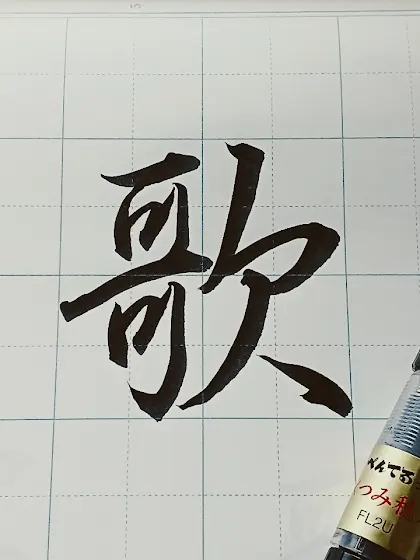 歌
ぺんてる
つみ
FL2U